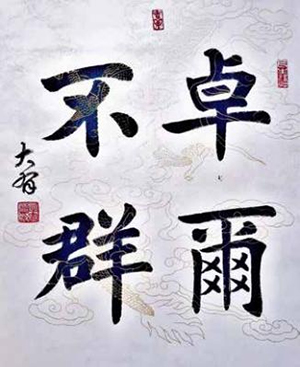 卓爾
不群
大有